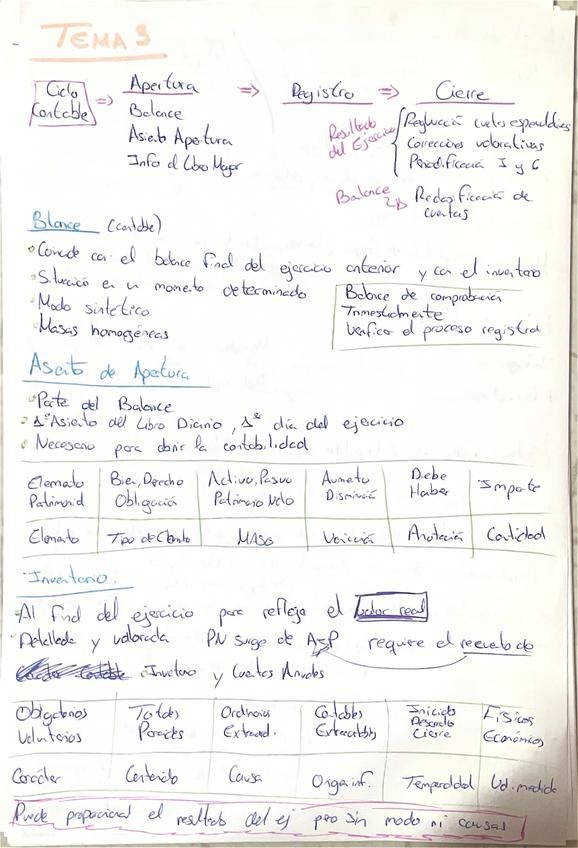 TEMA 3
Ciclo Contable => Apertura => Registro => Cierre
Balance
Asiento Apertura
Info al Libro Mayor
Resultado del Ejercicio
Regluación cuotas esporádicas
Correcciones valorativas
Periodificación I y G
Balance
Reclasificación de cuentas
Blance (contable)
Coincide con el balance final del ejercicio anterior y con el inventario
Situación en un momento determinado
Modo sintético
Masas homogéneas
Balance de comprobación
Trimestralmente
Verificar el proceso registral
Asiento de Apertura
Parte del Balance
1er Asiento del Libro Diario, 1er día del ejercicio
Necesario para abrir la contabilidad
Elemento Patrimonial | Bien, Derecho Obligación | Activo, Pasivo Patrimonio Neto | Aumento Disminución | Debe Haber | Importe
Elemento | Tipo de Elemento | MASA | Variación | Anotación | Cantidad
Inventario.
Al final del ejercicio para reflejar el valor real
Detallada y valorada PN surge de A-P requiere el recuento de
Inventario y Cuentas Anuales
Obligatorios Voluntarios | Totales Parciales | Ordinarios Extraord. | Contables Extracontables | Iniciales Desarrollo Cierre | Físicos Económicos
Carácter | Contenido | Causa | Origen inf. | Temporalidad | Ud. medida
Puede proporcional el resultado del ej pero sin modo ni causas